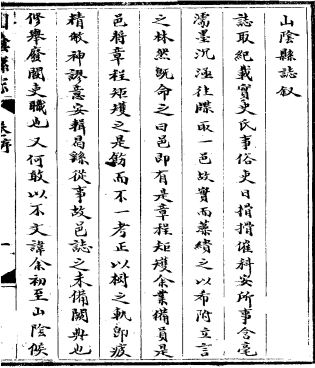 山陰縣誌叙
誌取紀載實史氏事俗吏日揹揹催科安所事含毫
濡墨沉湎往牒取一邑故實而藻繢之以希附立言
之林然既命之曰邑即有是章程矩矱余業備員是
邑將章程矩矱之是飭而不一考正以樹之軌即疲
精敝神謬意安輯曷繇從事故邑誌之未備闕典也
修舉廢闕吏職也又何敢以不文諱余初至山陰候